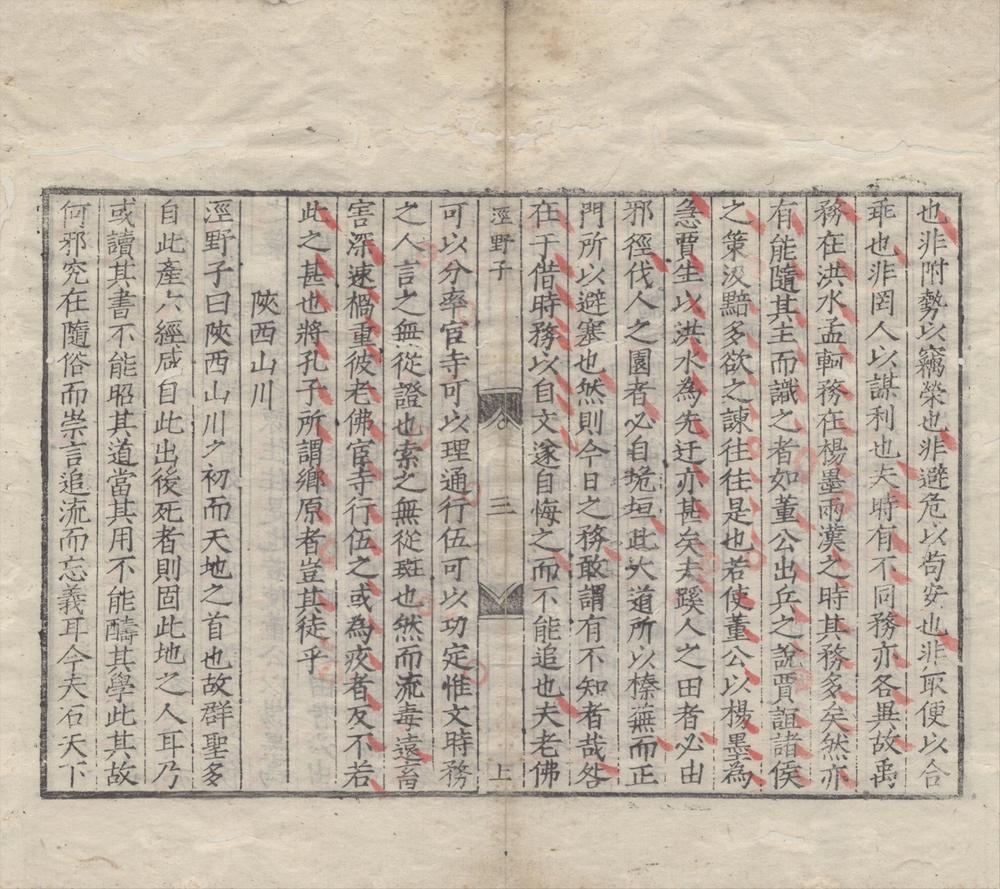 也非附勢以竊榮也非避危以苟安也非取便以合
乖也非罔人以謀利也夫時有不同務亦各異故禹
務在洪水孟軻務在楊墨兩漢之時其務多矣然亦
有能隨其主而識之者如董公出兵之說賈誼諸侯
之策汲黯多欲之諫往往是也若使董公以楊墨為
急賈生以洪水為先迂亦甚矣夫蹊人之田者必由
邪徑伐人之園者必自垝垣此大道所以榛蕪而正
門所以避塞也然則今日之務敢謂有不知者哉咎
在于借時務以自文遂自悔之而不能追也夫老佛
涇野子 三 上
可以分率官寺可以理通行伍可以功定惟文時務
之人言之無從證也索之無從斑也然而流毒遠畜
害深速禍重彼老佛宦寺行伍之或為疫者反不若
此之甚也將孔子所謂鄉原者豈其徒乎
陝西山川
涇野子曰陝西山川之初而天地之首也故群聖多
自此產六經咸自此出後死者則固此地之人耳乃
或讀其書不能昭其道當其用不能醻其學此其故
何邪究在隨俗而崇言追流而忘義耳今夫石天下